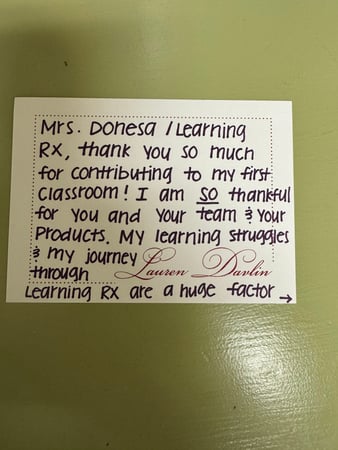 Mrs. Donesa / Learning
RX, thank you so much
for contributing to my first
classroom! I am so thankful
for you and your team & your
products. My learning struggles
& my journey
through
Lauren Davlin
Learning RX are a huge factor →